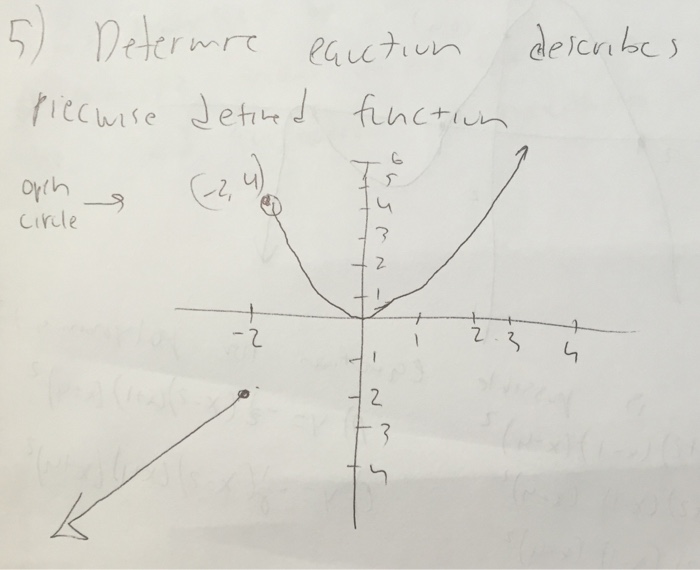 5) Determine equation describes
piecwise defined function
open → (-2, 4)
circle
6
5
4
3
2
1
-2 1 2 3 4
1
2
3
4